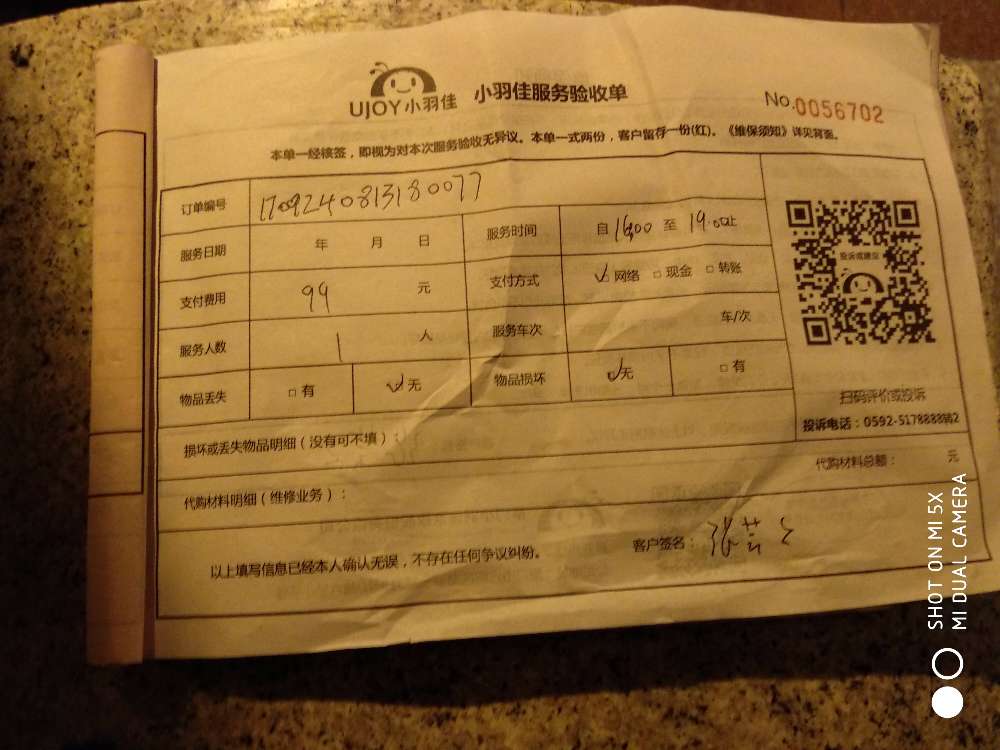 UJOY小羽佳 小羽佳服务验收单 No.0056702
本单一经核签，即视为对本次服务验收无异议。本单一式两份，客户留存一份(红)。《维保须知》详见背面。
订单编号 1709240813180077
服务日期 年 月 日 服务时间 自 至 19:00止
支付费用 99 元 支付方式 ☑网络 □现金 □转账
服务人数 1 人 服务车次 车/次
物品丢失 □有 ☑无 物品损坏 ☑无 □有
投诉或建议
扫码评价或投诉
投诉电话：0592-5178888转2
损坏或丢失物品明细（没有可不填）：
代购材料总额： 元
代购材料明细（维修业务）：
以上填写信息已经本人确认无误，不存在任何争议纠纷。 客户签名：张芸
SHOT ON MI 5X
MI DUAL CAMERA